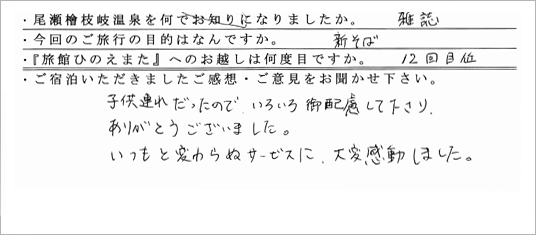 ・尾瀬檜枝岐温泉を何でお知りになりましたか。 雑誌
・今回のご旅行の目的はなんですか。 新そば
・『旅館ひのえまた』へのお越しは何度目ですか。 12回目位
・ご宿泊いただきましたご感想・ご意見をお聞かせ下さい。
子供連れだったので、いろいろ御配慮して下さり、
ありがとうございました。
いつもと変わらぬサービスに、大変感動しました。